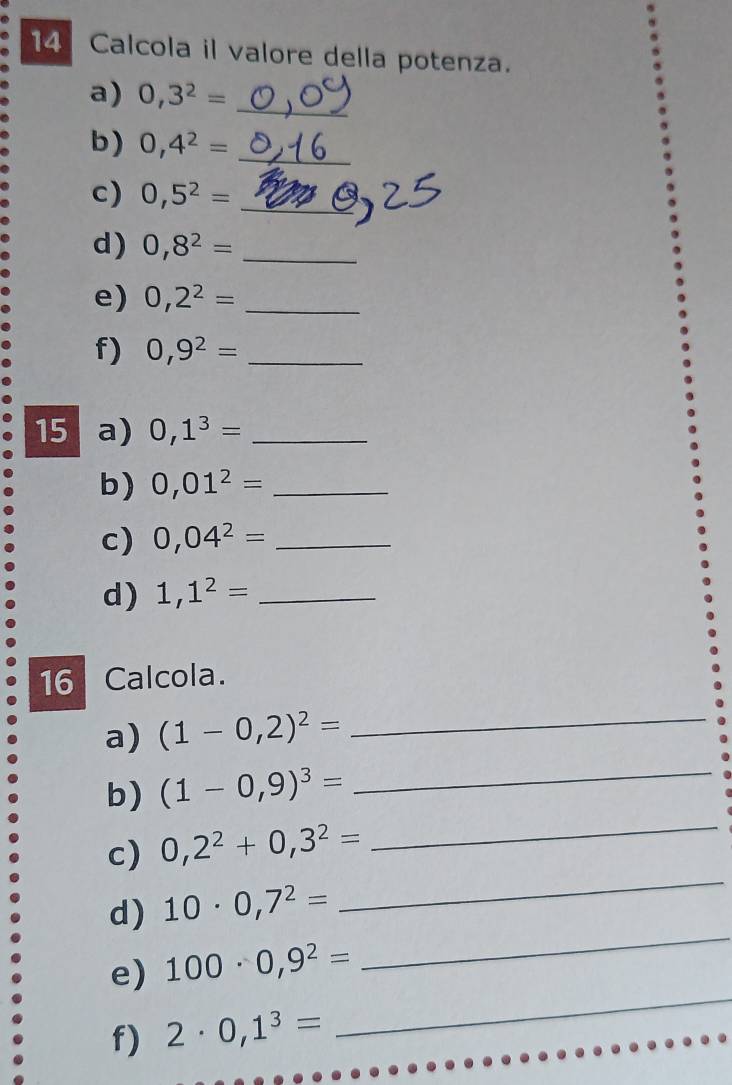 14 Calcola il valore della potenza.
a) 0,3² = 0,09
b) 0,4² = 0,16
c) 0,5² = 0,25
d) 0,8² = ____
e) 0,2² = ____
f) 0,9² = ____
15 a) 0,1³ = ____
b) 0,01² = ____
c) 0,04² = ____
d) 1,1² = ____
16 Calcola.
a) (1 − 0,2)² = ____
b) (1 − 0,9)³ = ____
c) 0,2² + 0,3² = ____
d) 10 · 0,7² = ____
e) 100 · 0,9² = ____
f) 2 · 0,1³ = ____